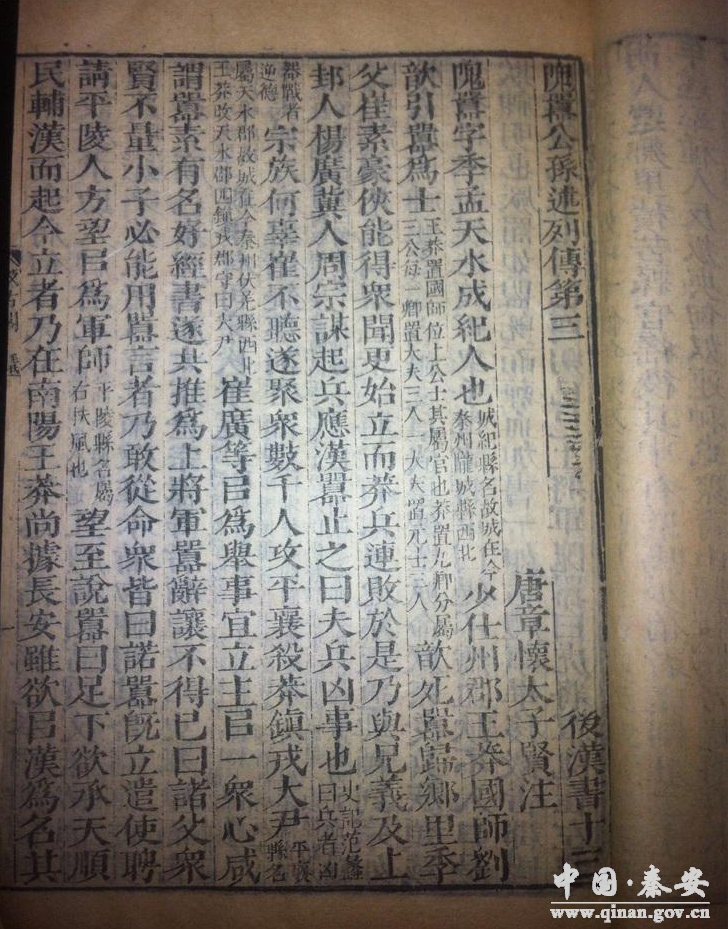 隗囂公孫述列傳第三 後漢書十三
唐章懷太子賢注
隗囂字季孟天水成紀人也成紀縣名故城在今秦州隴城縣西北少仕州郡王莽國師劉
歆引囂爲士王莽置國師位上公士其屬官也莽置九卿分屬三公每一卿置大夫三人一大夫置元士三人歆死囂歸鄉里季
父崔素豪俠能得衆聞更始立而莽兵連敗於是乃與兄義及上
邽人楊廣冀人周宗謀起兵應漢囂止之曰夫兵凶事也史記范蠡曰兵者凶
器戰者逆德宗族何辜崔不聽遂聚衆數千人攻平襄殺莽鎮戎大尹平襄縣名
屬天水郡故城在今秦州伏羌縣西北王莽改天水郡曰鎮戎郡守曰大尹崔廣等㠯爲舉事宜立主㠯一衆心咸
謂囂素有名好經書遂共推爲上將軍囂辭讓不得已曰諸父衆
賢不量小子必能用囂言者乃敢從命衆皆曰諾囂既立遣使聘
請平陵人方望㠯爲軍師平陵縣名屬右扶風也望至說囂曰足下欲承天順
民輔漢而起今立者乃在南陽王莽尚據長安雖欲㠯漢爲名其
中国·秦安
www.qinan.gov.cn